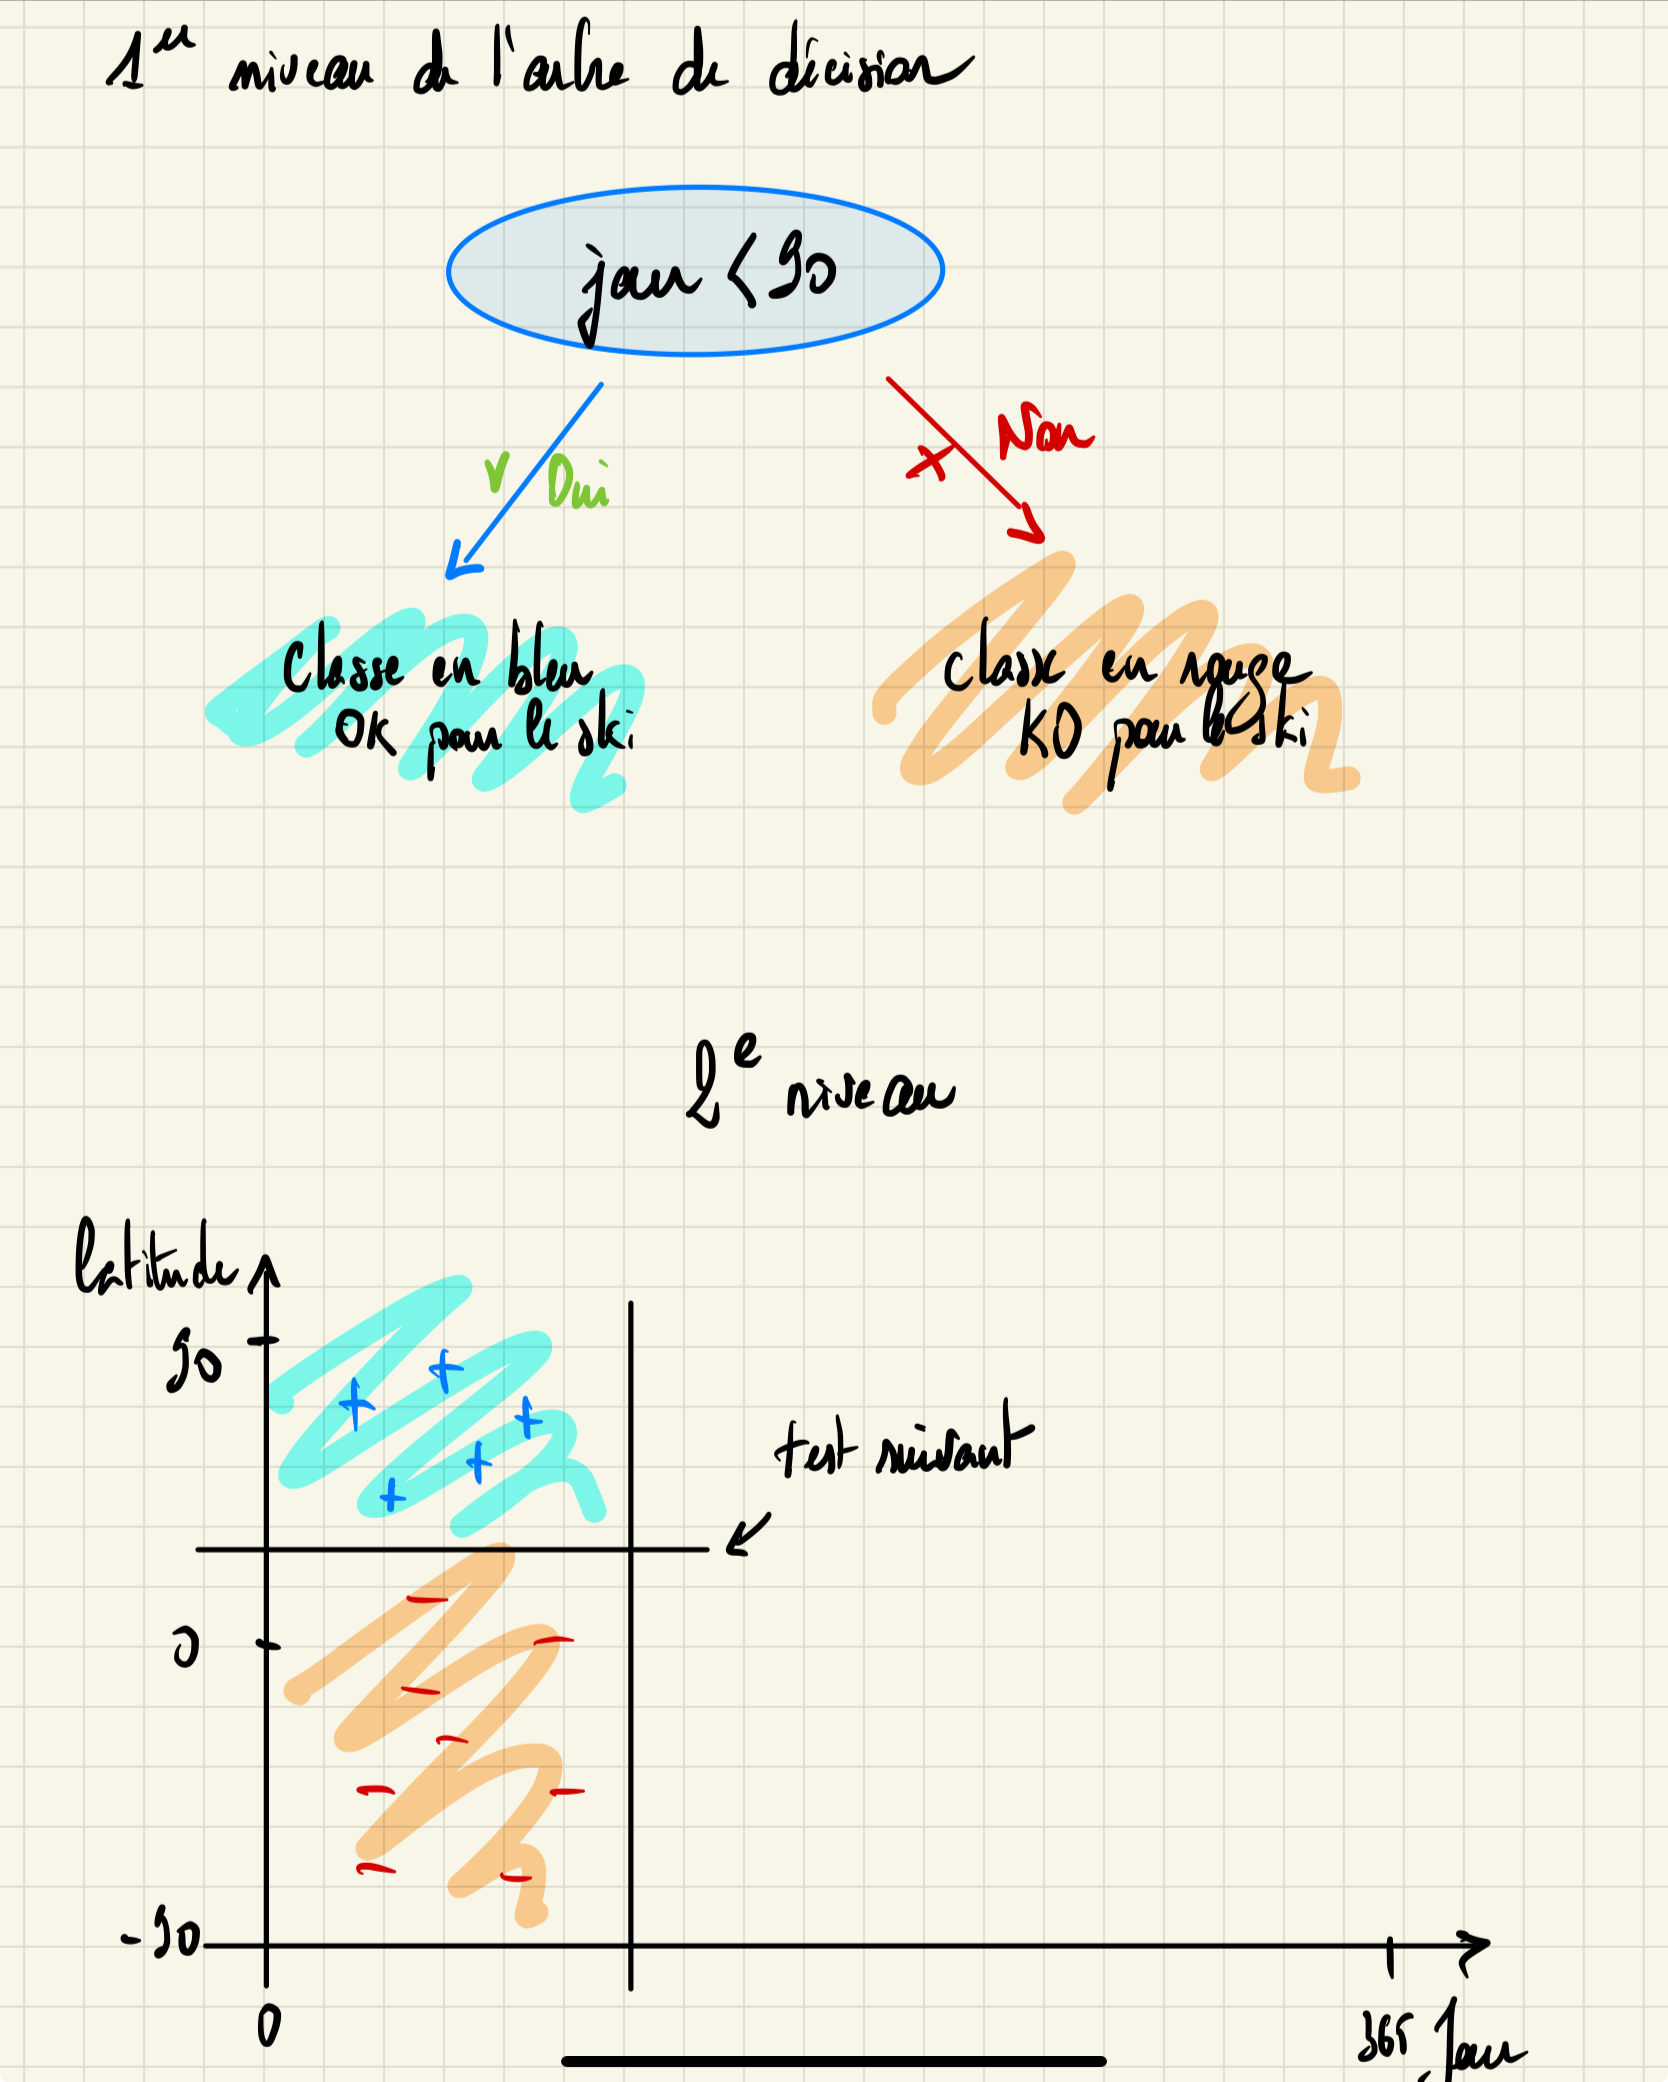 1er niveau de l'arbre de décision
jour < 90
v Oui
x Non
Classe en bleu
OK pour le ski
Classe en rouge
KO pour le ski
2e niveau
latitude
90
test suivant
0
-90
0
365
Jour